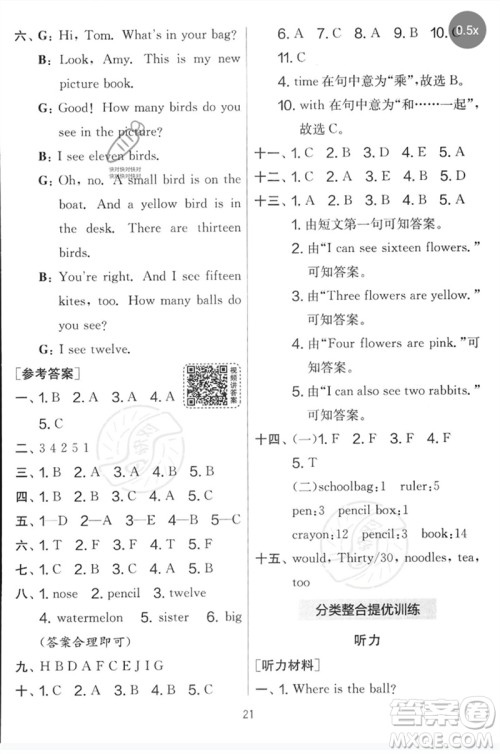 六、G: Hi, Tom. What's in your bag?
B: Look, Amy. This is my new
picture book.
G: Good! How many birds do you
see in the picture?
B: I see eleven birds.
G: Oh, no. A small bird is on the
boat. And a yellow bird is on
the desk. There are thirteen
birds.
B: You're right. And I see fifteen
kites, too. How many balls do
you see?
G: I see twelve.
[参考答案]
一、1. B 2. A 3. A 4. A
5. C
二、3 4 2 5 1
三、1. B 2. A 3. A 4. B 5. A
四、1. B 2. B 3. A 4. B 5. C
五、1—D 2—A 3—E 4—B 5—C
六、1. T 2. F 3. F 4. T 5. F
七、1. C 2. C 3. B 4. C 5. A
八、1. nose 2. pencil 3. twelve
4. watermelon 5. sister 6. big
(答案合理即可)
九、H B D A F C E J I G
十、1. C 2. B 3. A 4. B 5. A
视频讲答案
快对快对快对
快对快对快对
6. A 7. C 8. A 9. B 10. C
11. C
4. time 在句中意为“乘”,故选 B。
10. with 在句中意为“和……一起”,
故选 C。
十一、1. C 2. B 3. D 4. E 5. A
十二、1. C 2. B 3. A 4. E 5. D
十三、1. A 2. B 3. B 4. B 5. A
1. 由短文第一句可知答案。
2. 由“I can see sixteen flowers.”
可知答案。
3. 由“Three flowers are yellow.”
可知答案。
4. 由“Four flowers are pink.”可
知答案。
5. 由“I can also see two rabbits.”
可知答案。
十四、(一)1. F 2. T 3. F 4. F
5. T
(二)schoolbag:1 ruler:5
pen:3 pencil box:1
crayon:12 pencil:9
十五、would, Thirty/30, noodles, tea,
too
分类整合提优训练
听力
[听力材料]
一、1. Where is the ball?
21
0.5x